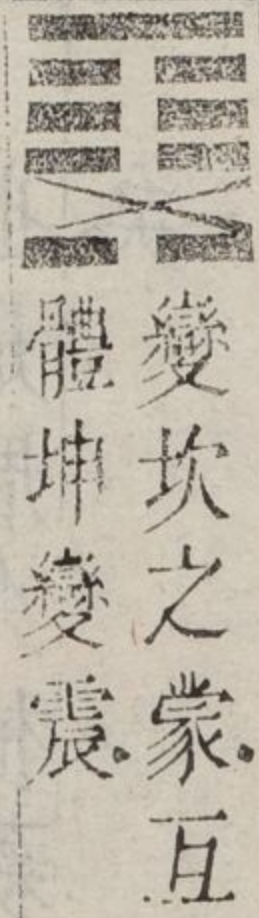 變坎之蒙.互
體坤變震.